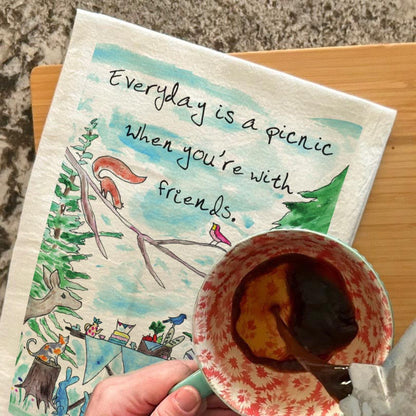 Everyday is a picnic
when you're with
friends.